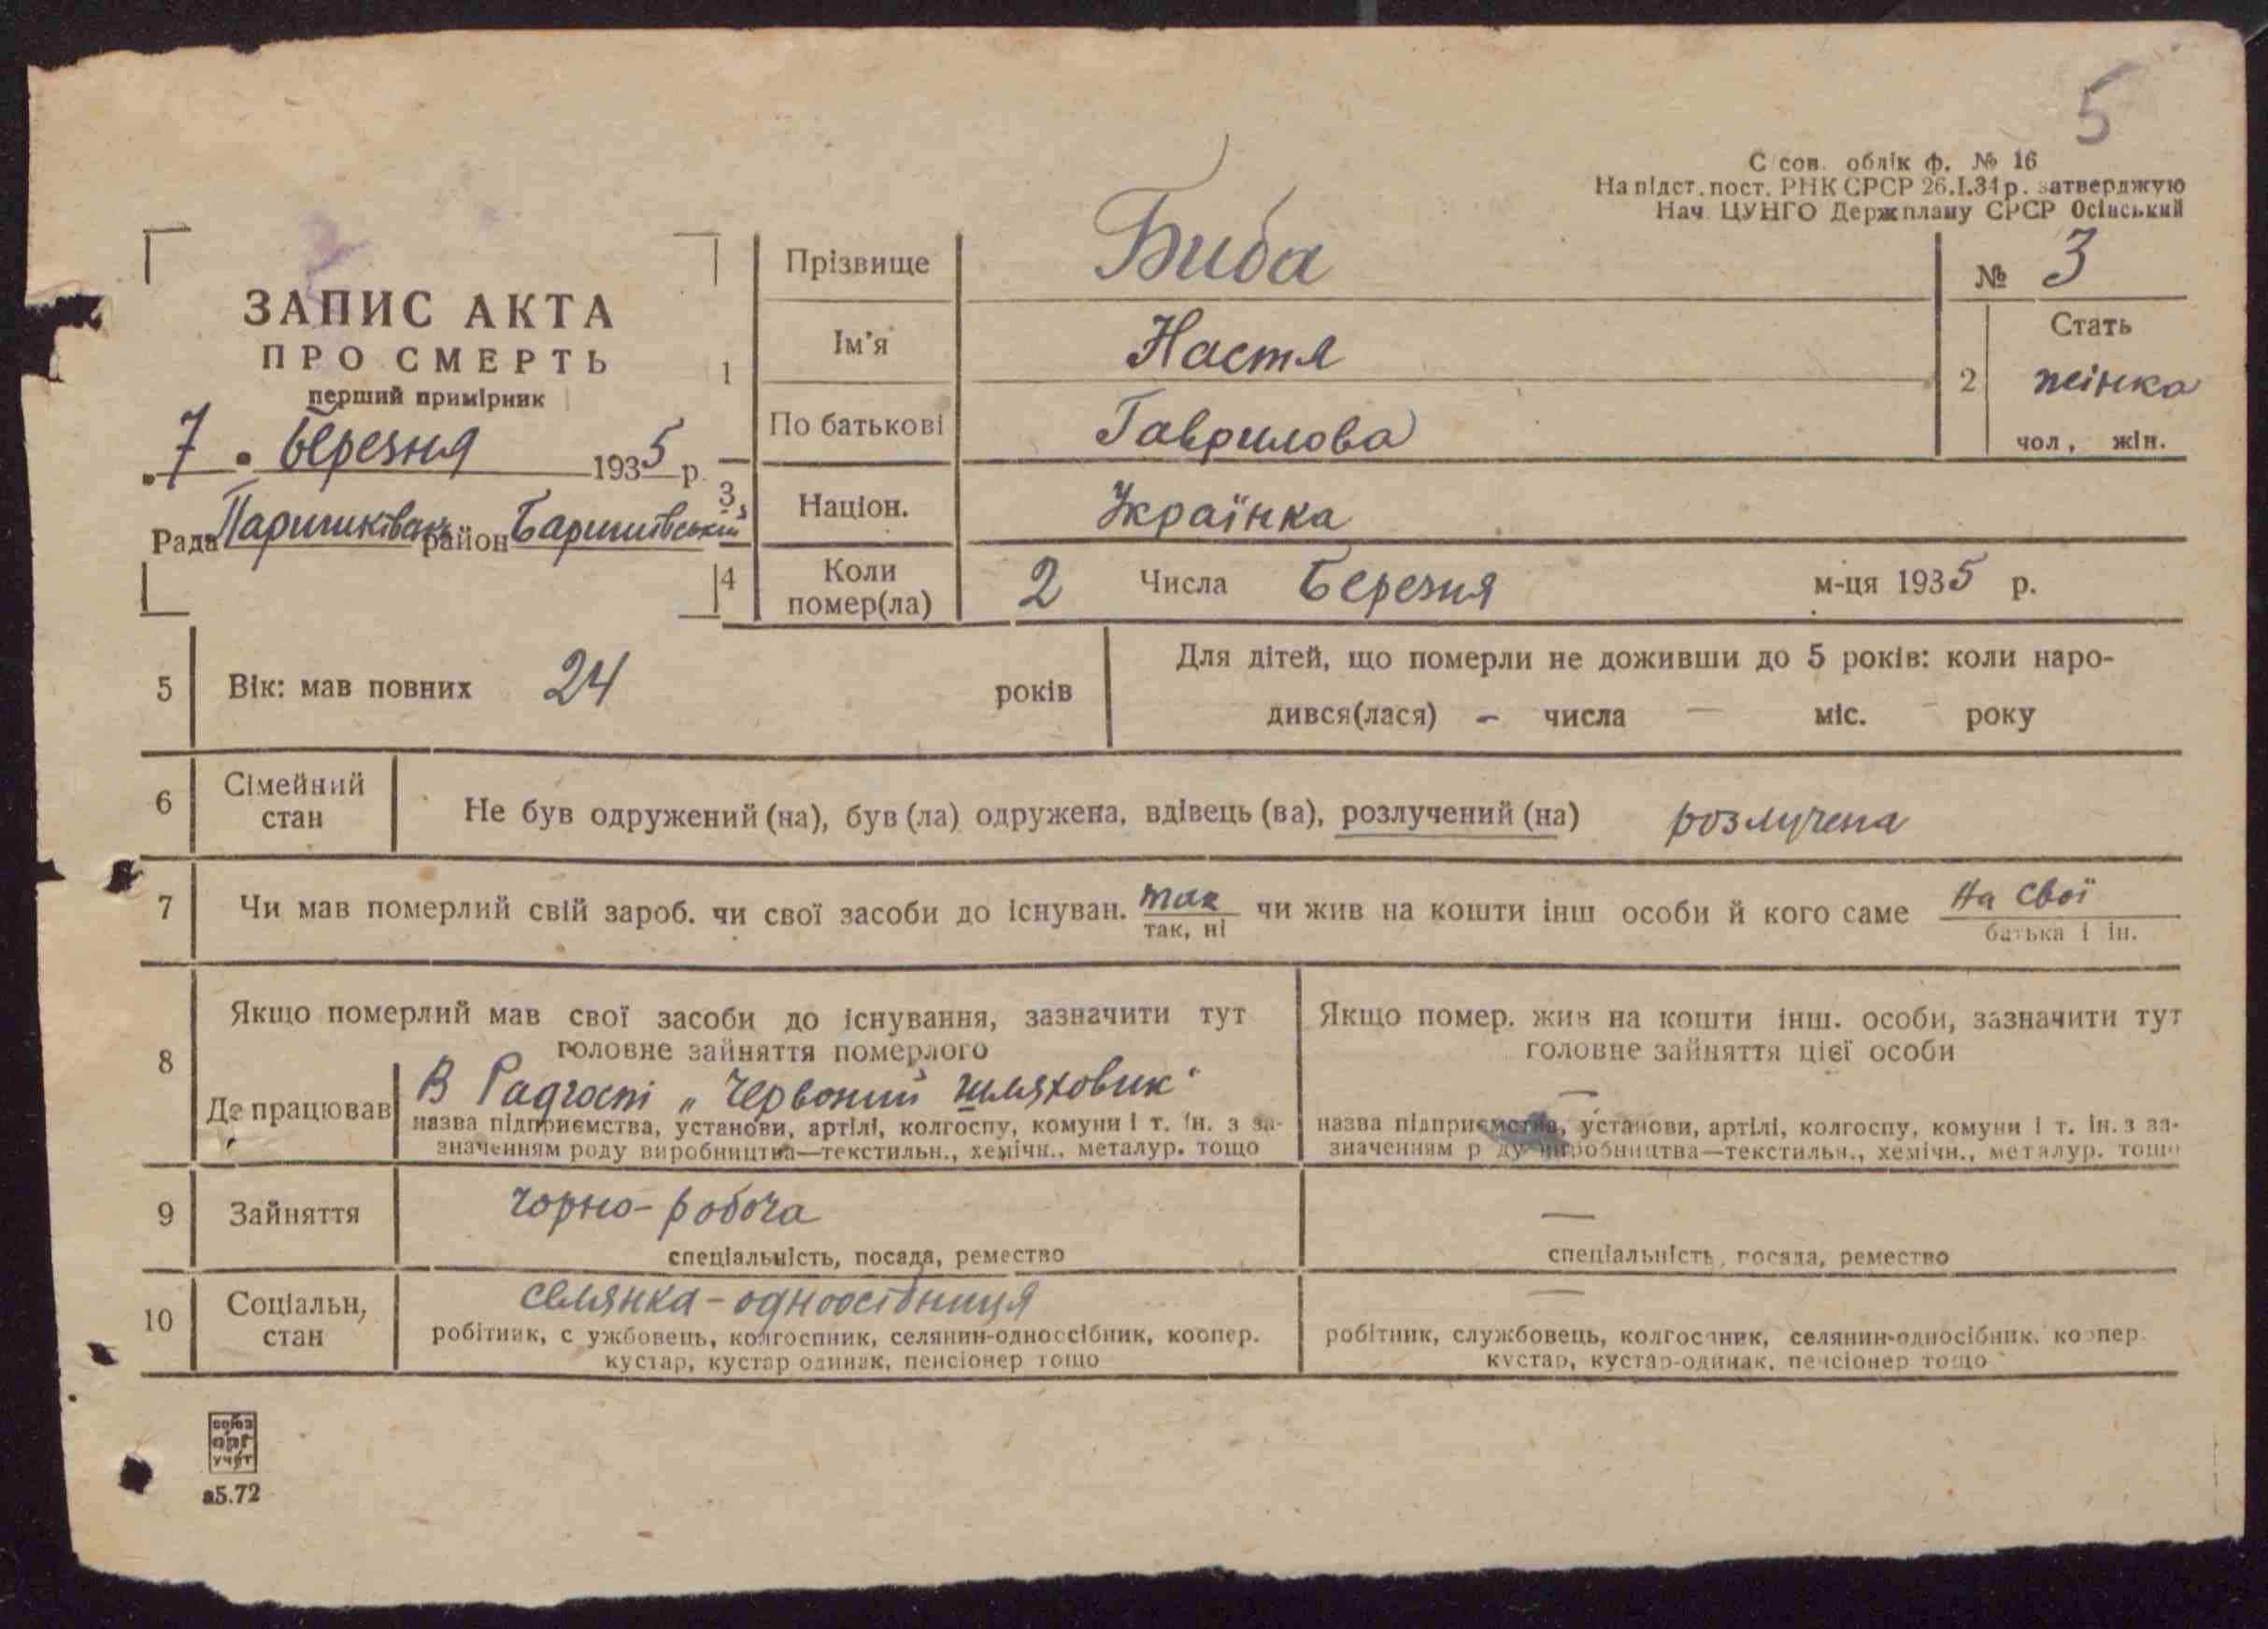 5
С сов. облік ф. № 16
На підст. пост. РНК СРСР 26.I.34 р. затверджую
Нач. ЦУНГО Держплану СРСР Осінський
ЗАПИС АКТА
ПРО СМЕРТЬ
перший примірник
7 • березня 1935 р.
Рада Паришківська район Баришівський
1 Прізвище Биба
Ім'я Настя
По батькові Гаврилова
№ 3
2 Стать
жінка
чол, жін.
3 Націон. Українка
4 Коли помер(ла) 2 Числа Березня м-ця 1935 р.
5 Вік: мав повних 24 років
Для дітей, що померли не доживши до 5 років: коли наро-
дився(лася) – числа — міс. - року
6 Сімейний стан
Не був одружений (на), був (ла) одружена, вдівець (ва), розлучений (на) розлучена
7 Чи мав померлий свій зароб. чи свої засоби до існуван. так чи жив на кошти інш особи й кого саме На свої
так, ні
батька і ін.
8 Якщо померлий мав свої засоби до існування, зазначити тут
головне зайняття померлого
Де працював В Радгоспі „Червоний шляховик"
назва підприємства, установи, артілі, колгоспу, комуни і т. ін. з за-
значенням роду виробництва—текстильн., хемічн., металур. тощо
Якщо помер. жив на кошти інш. особи, зазначити тут
головне зайняття цієї особи
—
назва підприємства, установи, артілі, колгоспу, комуни і т. ін. з за-
значенням р ду виробництва—текстильн., хемічн., металур. тощо
9 Зайняття чорно-робоча
спеціальність, посада, ремество
—
спеціальність, посада, ремество
10 Соціальн, стан
селянка-одноосібниця
робітник, с ужбовець, колгоспник, селянин-одноосібник, коопер.
кустар, кустар одинак, пенсіонер тощо
—
робітник, службовець, колгоспник, селянин-односібник, коопер
кустар, кустар-одинак, пенсіонер тощо
союз
орг
учёт
а5.72